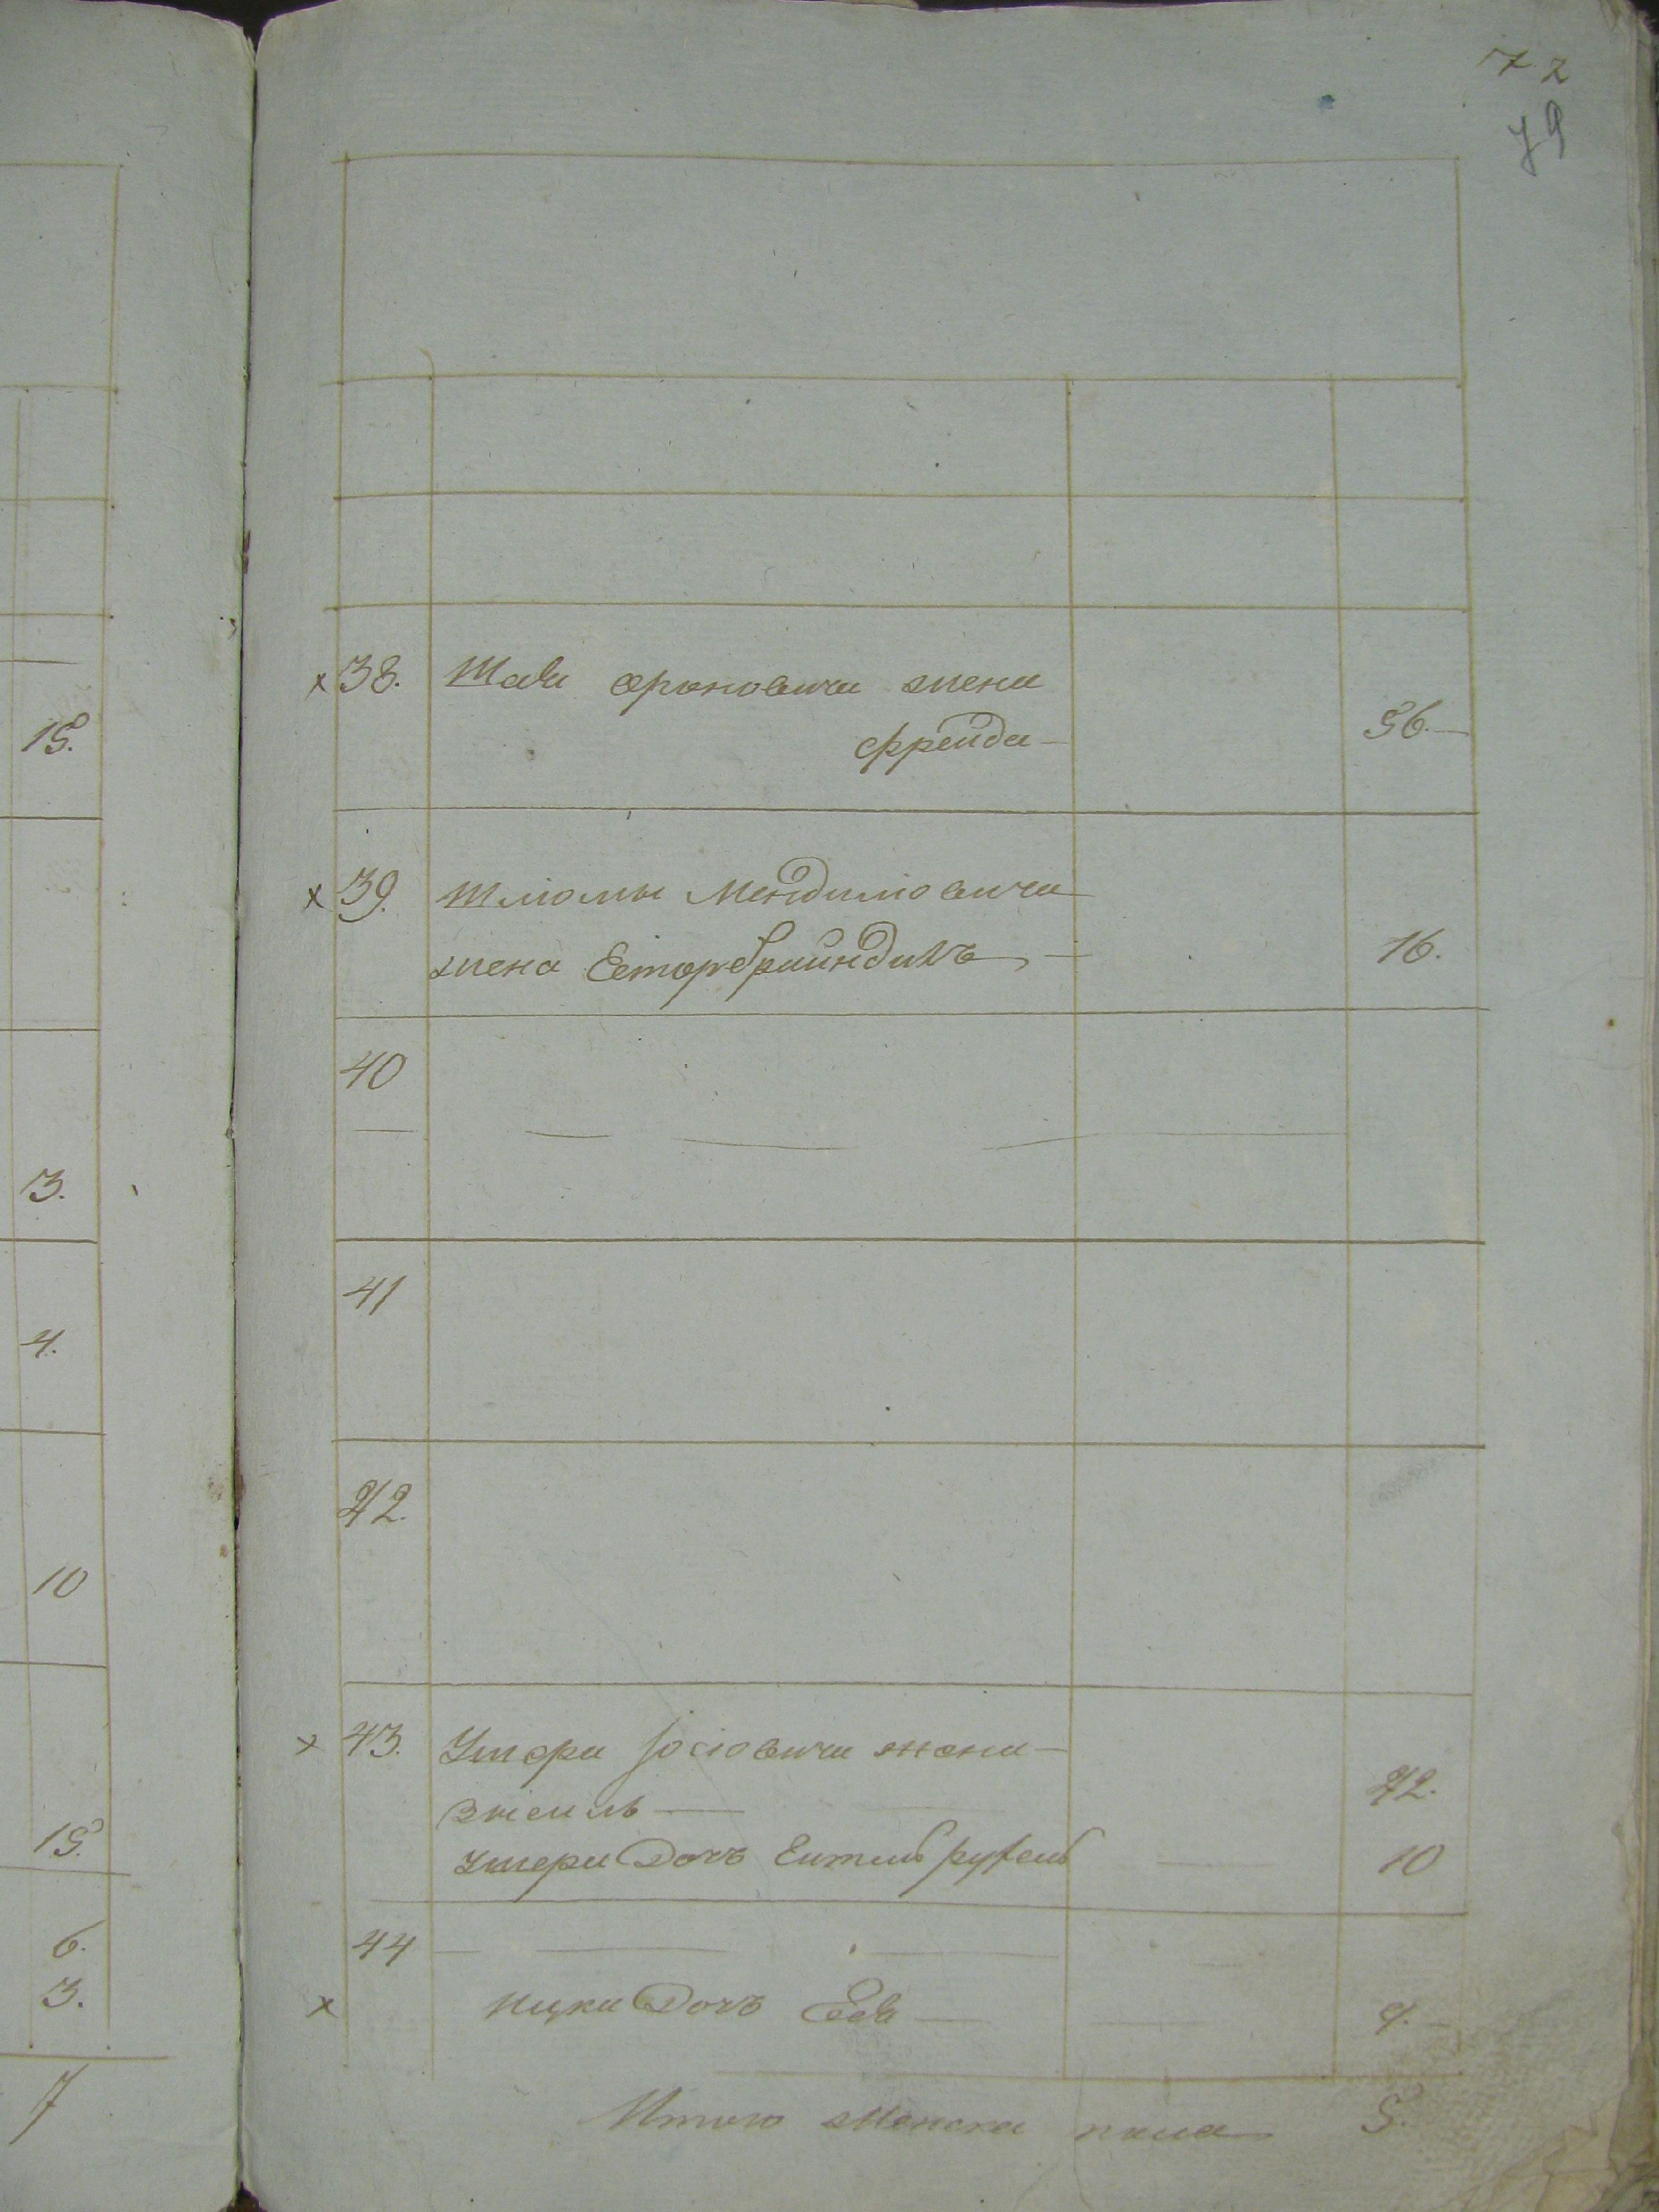 72
79
15.
3.
4.
10
15.
6.
3.
7
х 38. Шаи ароновича жена
Фрейда — 56. —
х 39. Шліомы Мендиліовича
жена Естербраиндиль — 16.
40
41
42.
х 43. Умера Іосіовича жена —
42.
Умери Дочъ Еитель руфель — 10
44
х Ицки Дочъ Еев — 9. —
Итого женска пола 5.